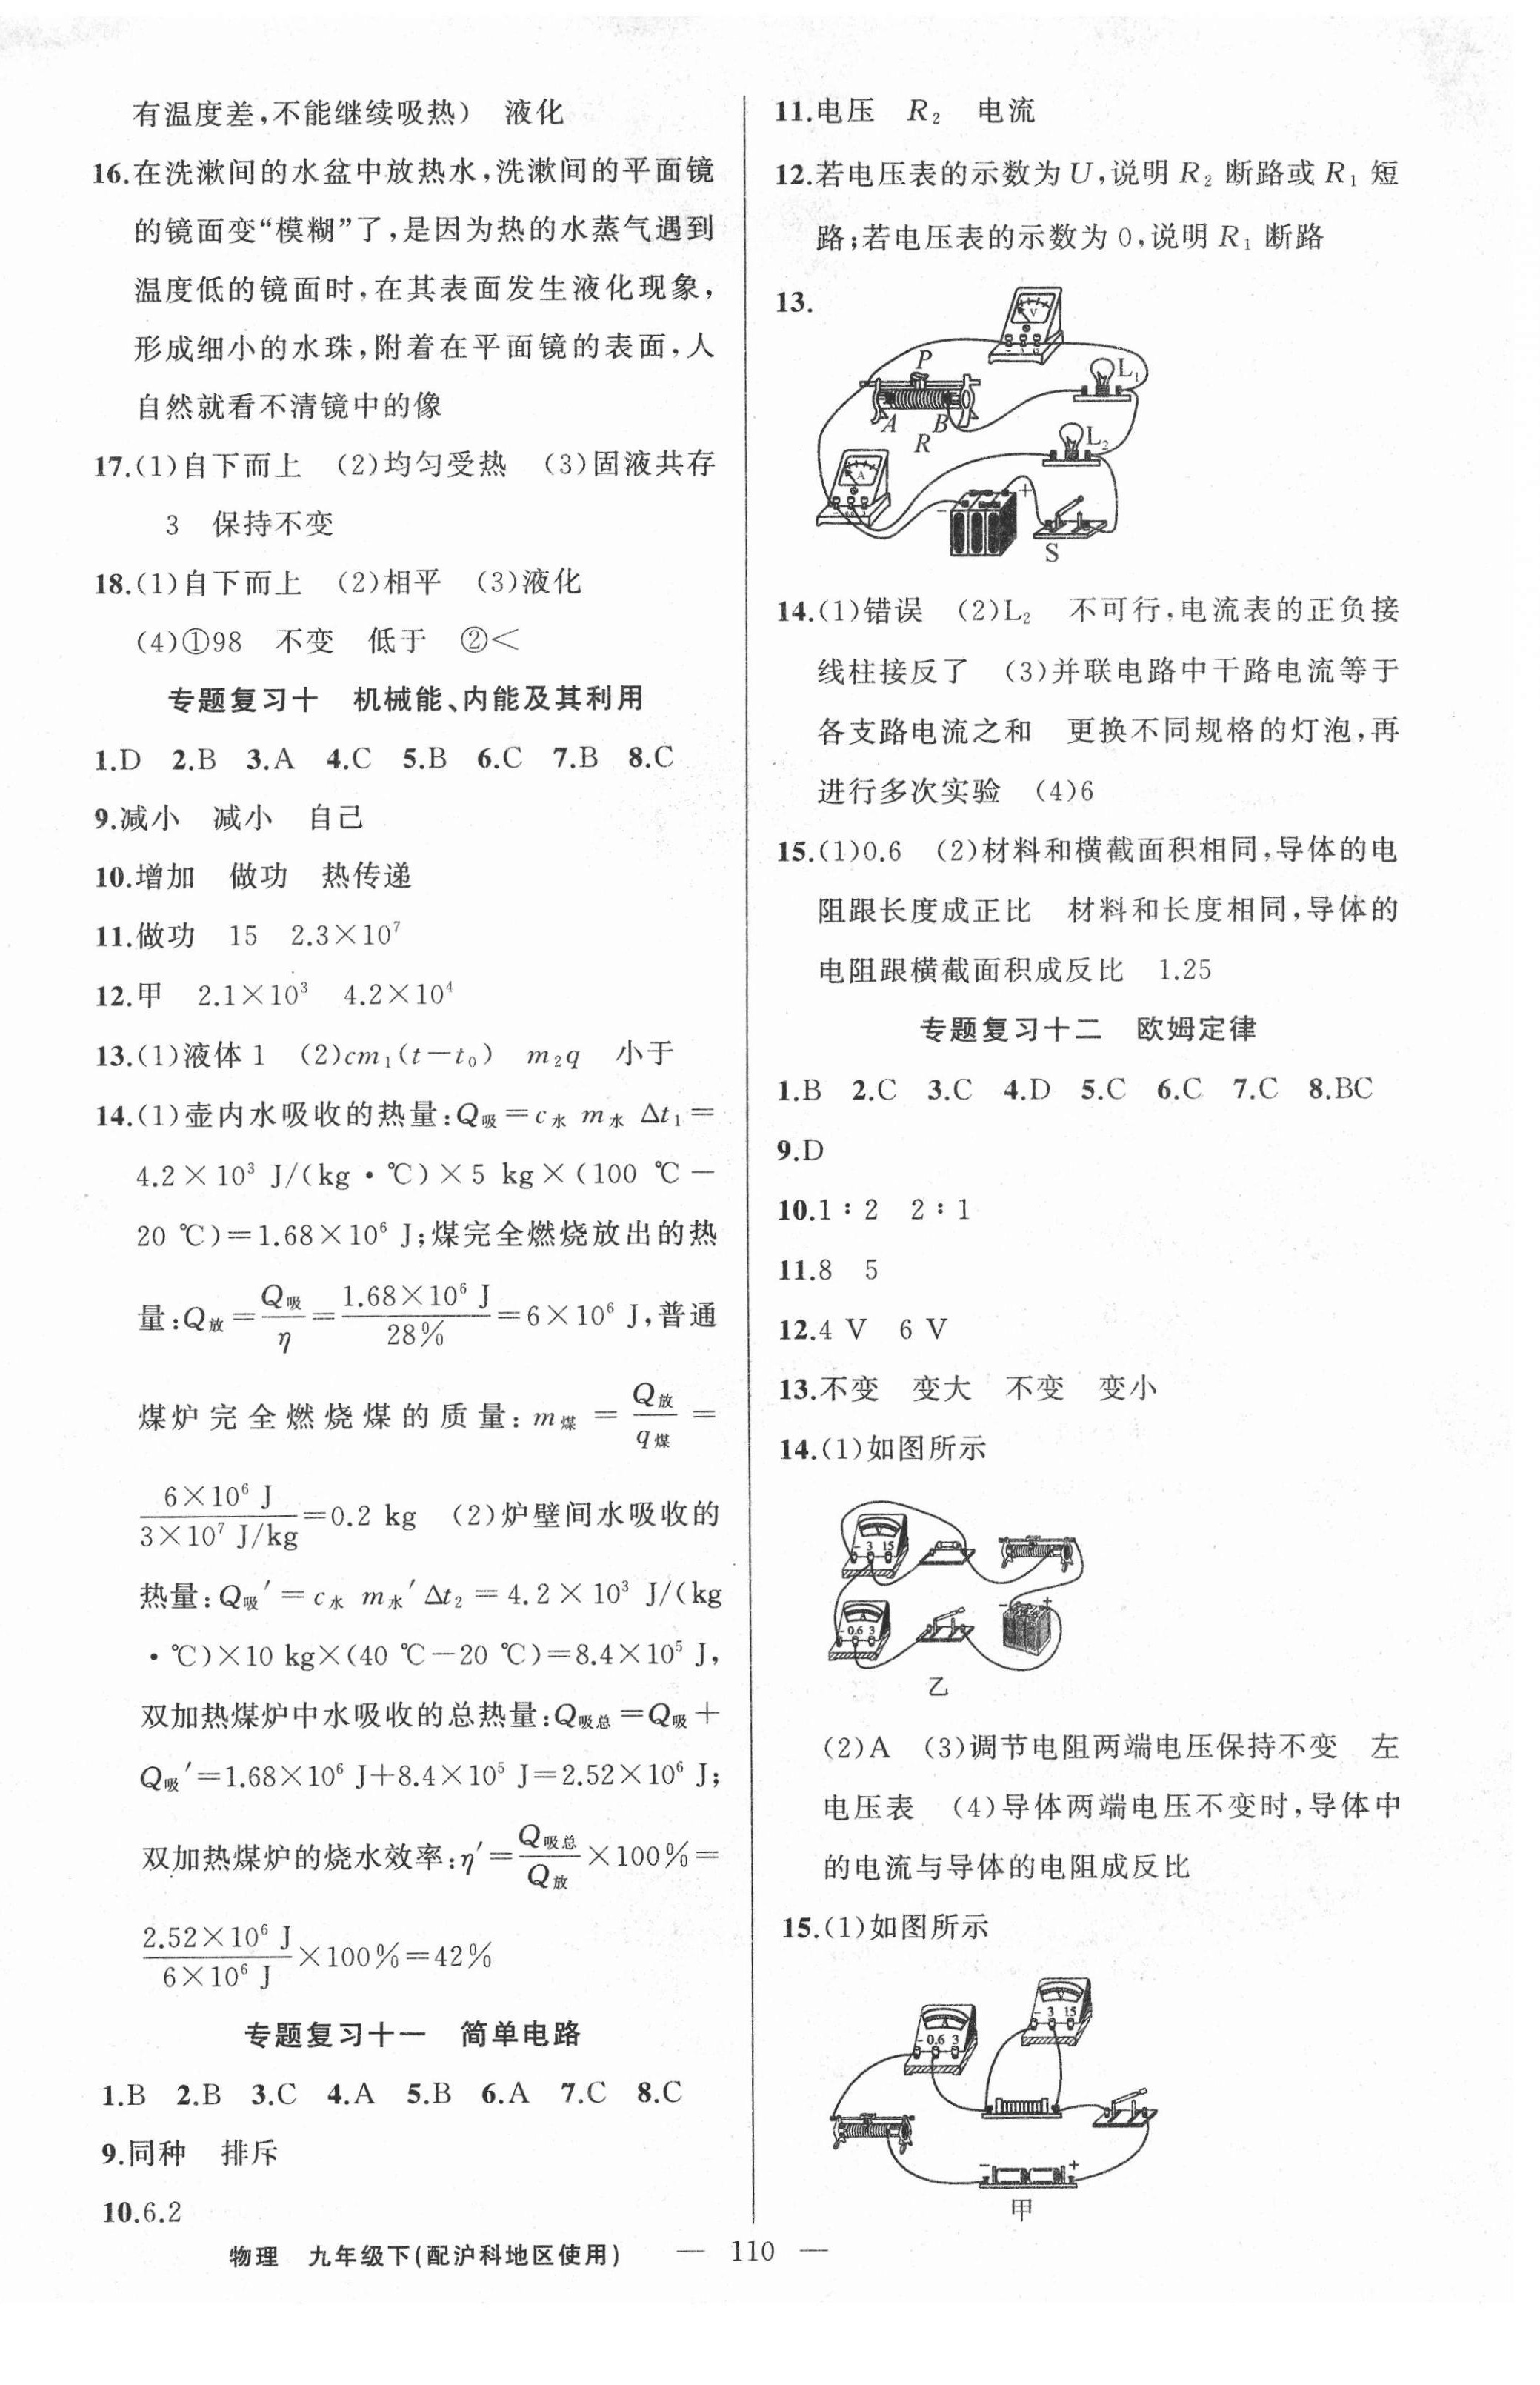 有温度差,不能继续吸热) 液化
16.在洗漱间的水盆中放热水,洗漱间的平面镜
的镜面变“模糊”了,是因为热的水蒸气遇到
温度低的镜面时,在其表面发生液化现象,
形成细小的水珠,附着在平面镜的表面,人
自然就看不清镜中的像
17.(1)自下而上 (2)均匀受热 (3)固液共存
3 保持不变
18.(1)自下而上 (2)相平 (3)液化
(4)①98 不变 低于 ②<
专题复习十 机械能、内能及其利用
1.D 2.B 3.A 4.C 5.B 6.C 7.B 8.C
9.减小 减小 自己
10.增加 做功 热传递
11.做功 15 2.3×10⁷
12.甲 2.1×10³ 4.2×10⁴
13.(1)液体1 (2)cm₁(t-t₀) m₂q 小于
14.(1)壶内水吸收的热量:Q吸=c水 m水 Δt₁=
4.2×10³ J/(kg·℃)×5 kg×(100 ℃-
20 ℃)=1.68×10⁶ J;煤完全燃烧放出的热
量:Q放=Q吸/η=1.68×10⁶ J/28%=6×10⁶ J,普通
煤炉完全燃烧煤的质量:m煤=Q放/q煤=
6×10⁶ J/3×10⁷ J/kg=0.2 kg (2)炉壁间水吸收的
热量:Q吸′=c水 m水′Δt₂=4.2×10³ J/(kg
·℃)×10 kg×(40 ℃-20 ℃)=8.4×10⁵ J,
双加热煤炉中水吸收的总热量:Q吸总=Q吸+
Q吸′=1.68×10⁶ J+8.4×10⁵ J=2.52×10⁶ J;
双加热煤炉的烧水效率:η′=Q吸总/Q放×100%=
2.52×10⁶ J/6×10⁶ J×100%=42%
专题复习十一 简单电路
1.B 2.B 3.C 4.A 5.B 6.A 7.C 8.C
9.同种 排斥
10.6.2
11.电压 R₂ 电流
12.若电压表的示数为U,说明R₂断路或R₁短
路;若电压表的示数为0,说明R₁断路
13.
V
P
L₁
A
B
R
L₂
A
-
+
S
14.(1)错误 (2)L₂ 不可行,电流表的正负接
线柱接反了 (3)并联电路中干路电流等于
各支路电流之和 更换不同规格的灯泡,再
进行多次实验 (4)6
15.(1)0.6 (2)材料和横截面积相同,导体的电
阻跟长度成正比 材料和长度相同,导体的
电阻跟横截面积成反比 1.25
专题复习十二 欧姆定律
1.B 2.C 3.C 4.D 5.C 6.C 7.C 8.BC
9.D
10.1∶2 2∶1
11.8 5
12.4 V 6 V
13.不变 变大 不变 变小
14.(1)如图所示
V
- 3 15
A
- 0.6 3
- +
乙
(2)A (3)调节电阻两端电压保持不变 左
电压表 (4)导体两端电压不变时,导体中
的电流与导体的电阻成反比
15.(1)如图所示
V
- 3 15
A
- 0.6 3
- +
甲
物理 九年级下(配沪科地区使用) — 110 —